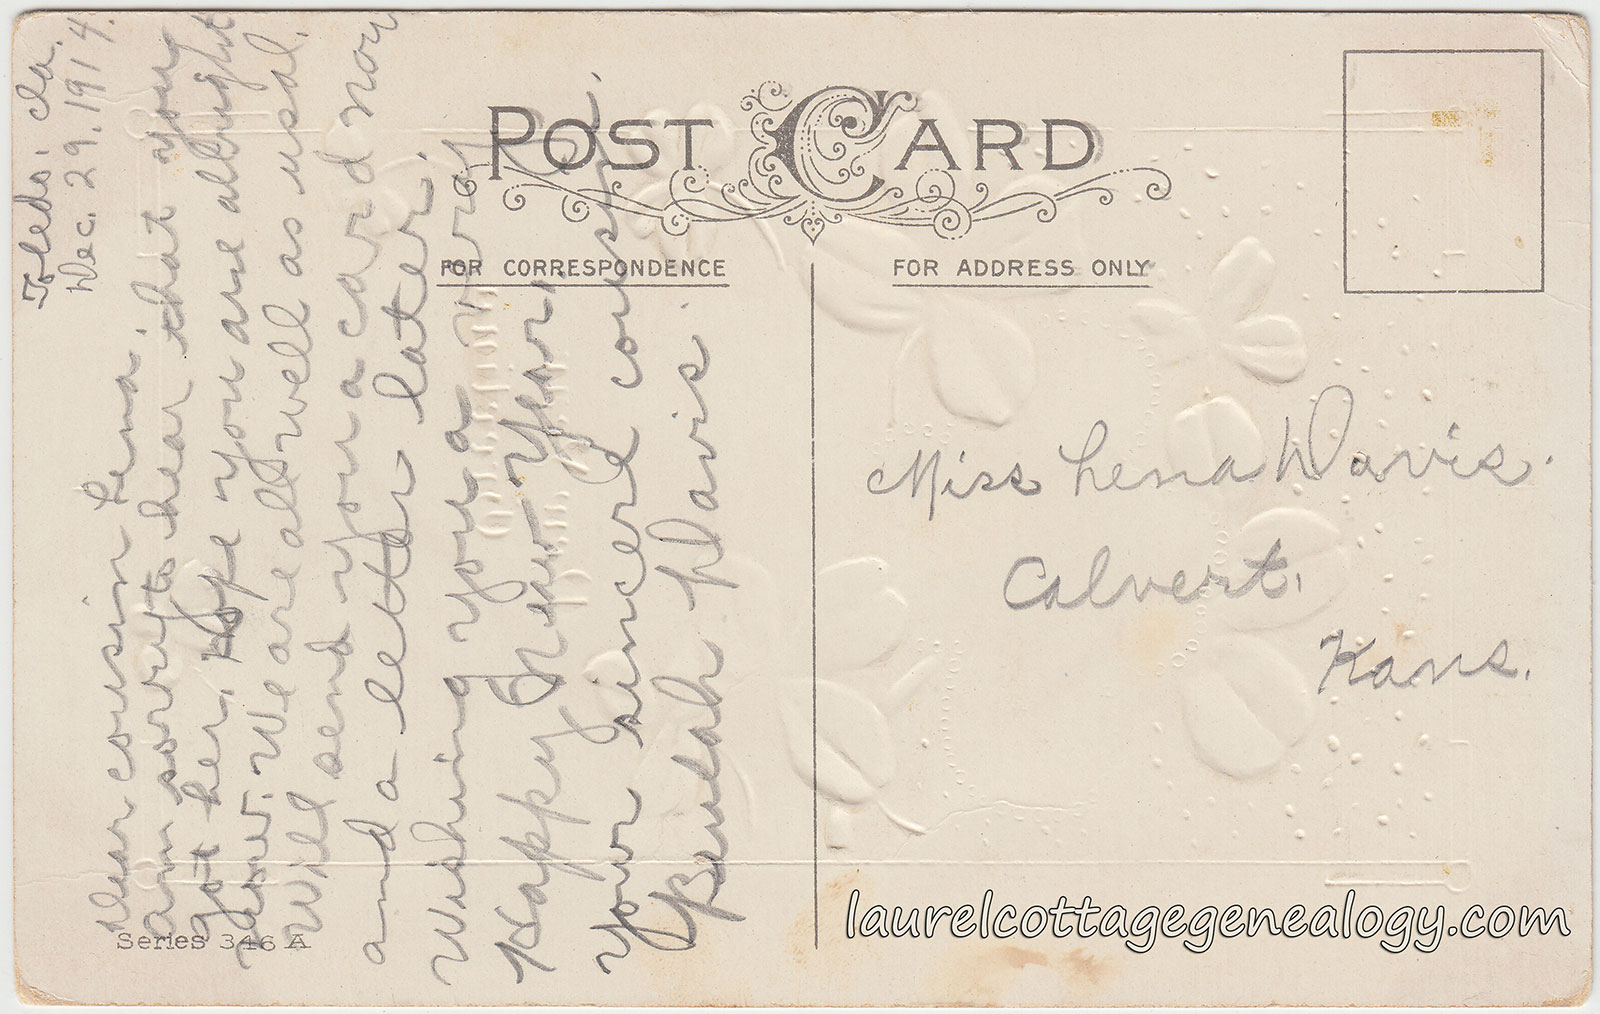 POST CARD
FOR CORRESPONDENCE
FOR ADDRESS ONLY
Toledo. Ia.
Dec. 29. 1914.
Dear cousin Lena.
am sorry to hear that you
got her. Hope you are allright
now. We are all well as usal.
Will send you a card now
and a letter later.
Wishing you a very
Happy New Year.
Your sincere cousin.
Beulah Davis.
Miss Lena Davis.
Calvert.
Kans.
Series 346 A
laurelcottagegenealogy.com